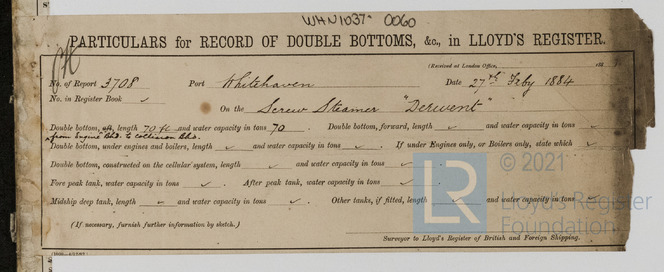 WHN1037-0060
PARTICULARS for RECORD OF DOUBLE BOTTOMS, &c., in LLOYD'S REGISTER.
(Received at London Office, 188
No. of Report 3708 Port Whitehaven Date 27th Feby 1884
No. in Register Book ✓
On the Screw Steamer "Derwent"
Double bottom, aft, length 70 ft and water capacity in tons 70. Double bottom, forward, length ✓ and water capacity in tons ✓
from Engine Bhd. to collision Bhd.
Double bottom, under engines and boilers, length ✓ and water capacity in tons ✓. If under Engines only, or Boilers only, state which ✓
Double bottom, constructed on the cellular system, length ✓ and water capacity in tons ✓.
Fore peak tank, water capacity in tons ✓. After peak tank, water capacity in tons ✓.
Midship deep tank, length ✓ and water capacity in tons ✓. Other tanks, if fitted, length ✓ and water capacity in tons ✓
(If necessary, furnish further information by sketch.)
Surveyor to Lloyd's Register of British and Foreign Shipping.
LR
© 2021
Lloyd's Register
Foundation